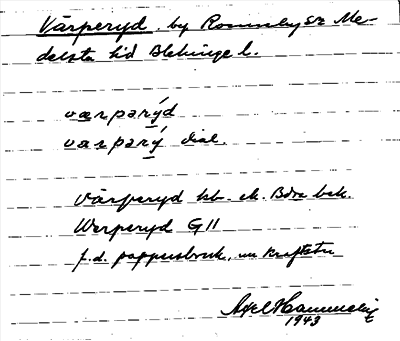 Värperyd, by Rommeby sn Me-
delsta hd Blekinge l.
værpərýd
værpərý dial.
Värperyd kb. ek. Bdr bek.
Werperyd GII
f.d. pappersbruk, nu kraftstn
Axel Hammelin
1943